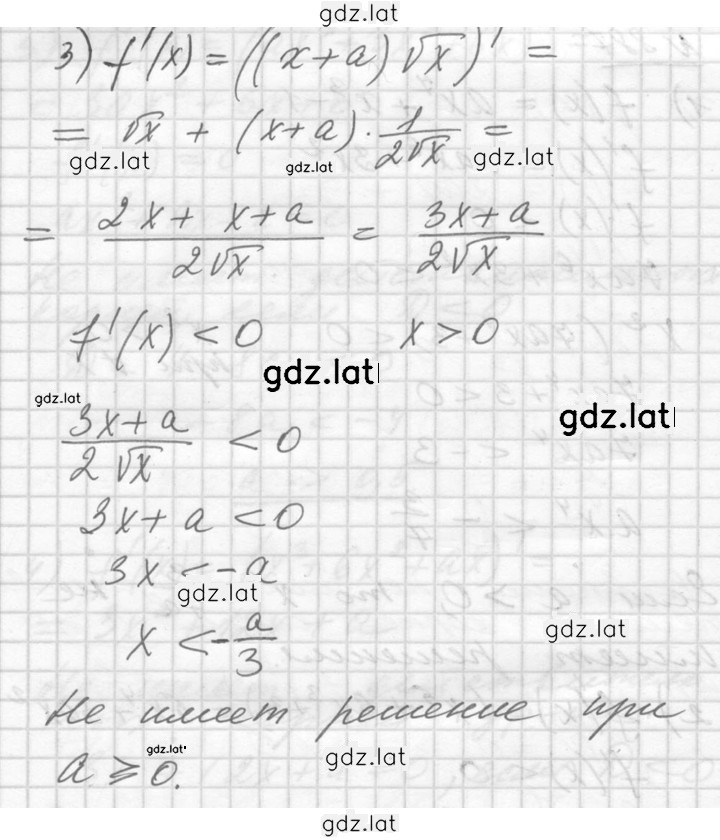 gdz.lat
3) f'(x) = ((x+a)√x)' =
= √x + (x+a)·1/(2√x) =
gdz.lat gdz.lat gdz.lat
= (2x + x+a)/(2√x) = (3x+a)/(2√x)
f'(x) < 0 x > 0
gdz.lat
gdz.lat gdz.lat
(3x+a)/(2√x) < 0
3x+a < 0
3x < -a
gdz.lat
x < -a/3
gdz.lat
Не имеет решение при
a ⩾ 0.
gdz.lat
gdz.lat
gdz.lat